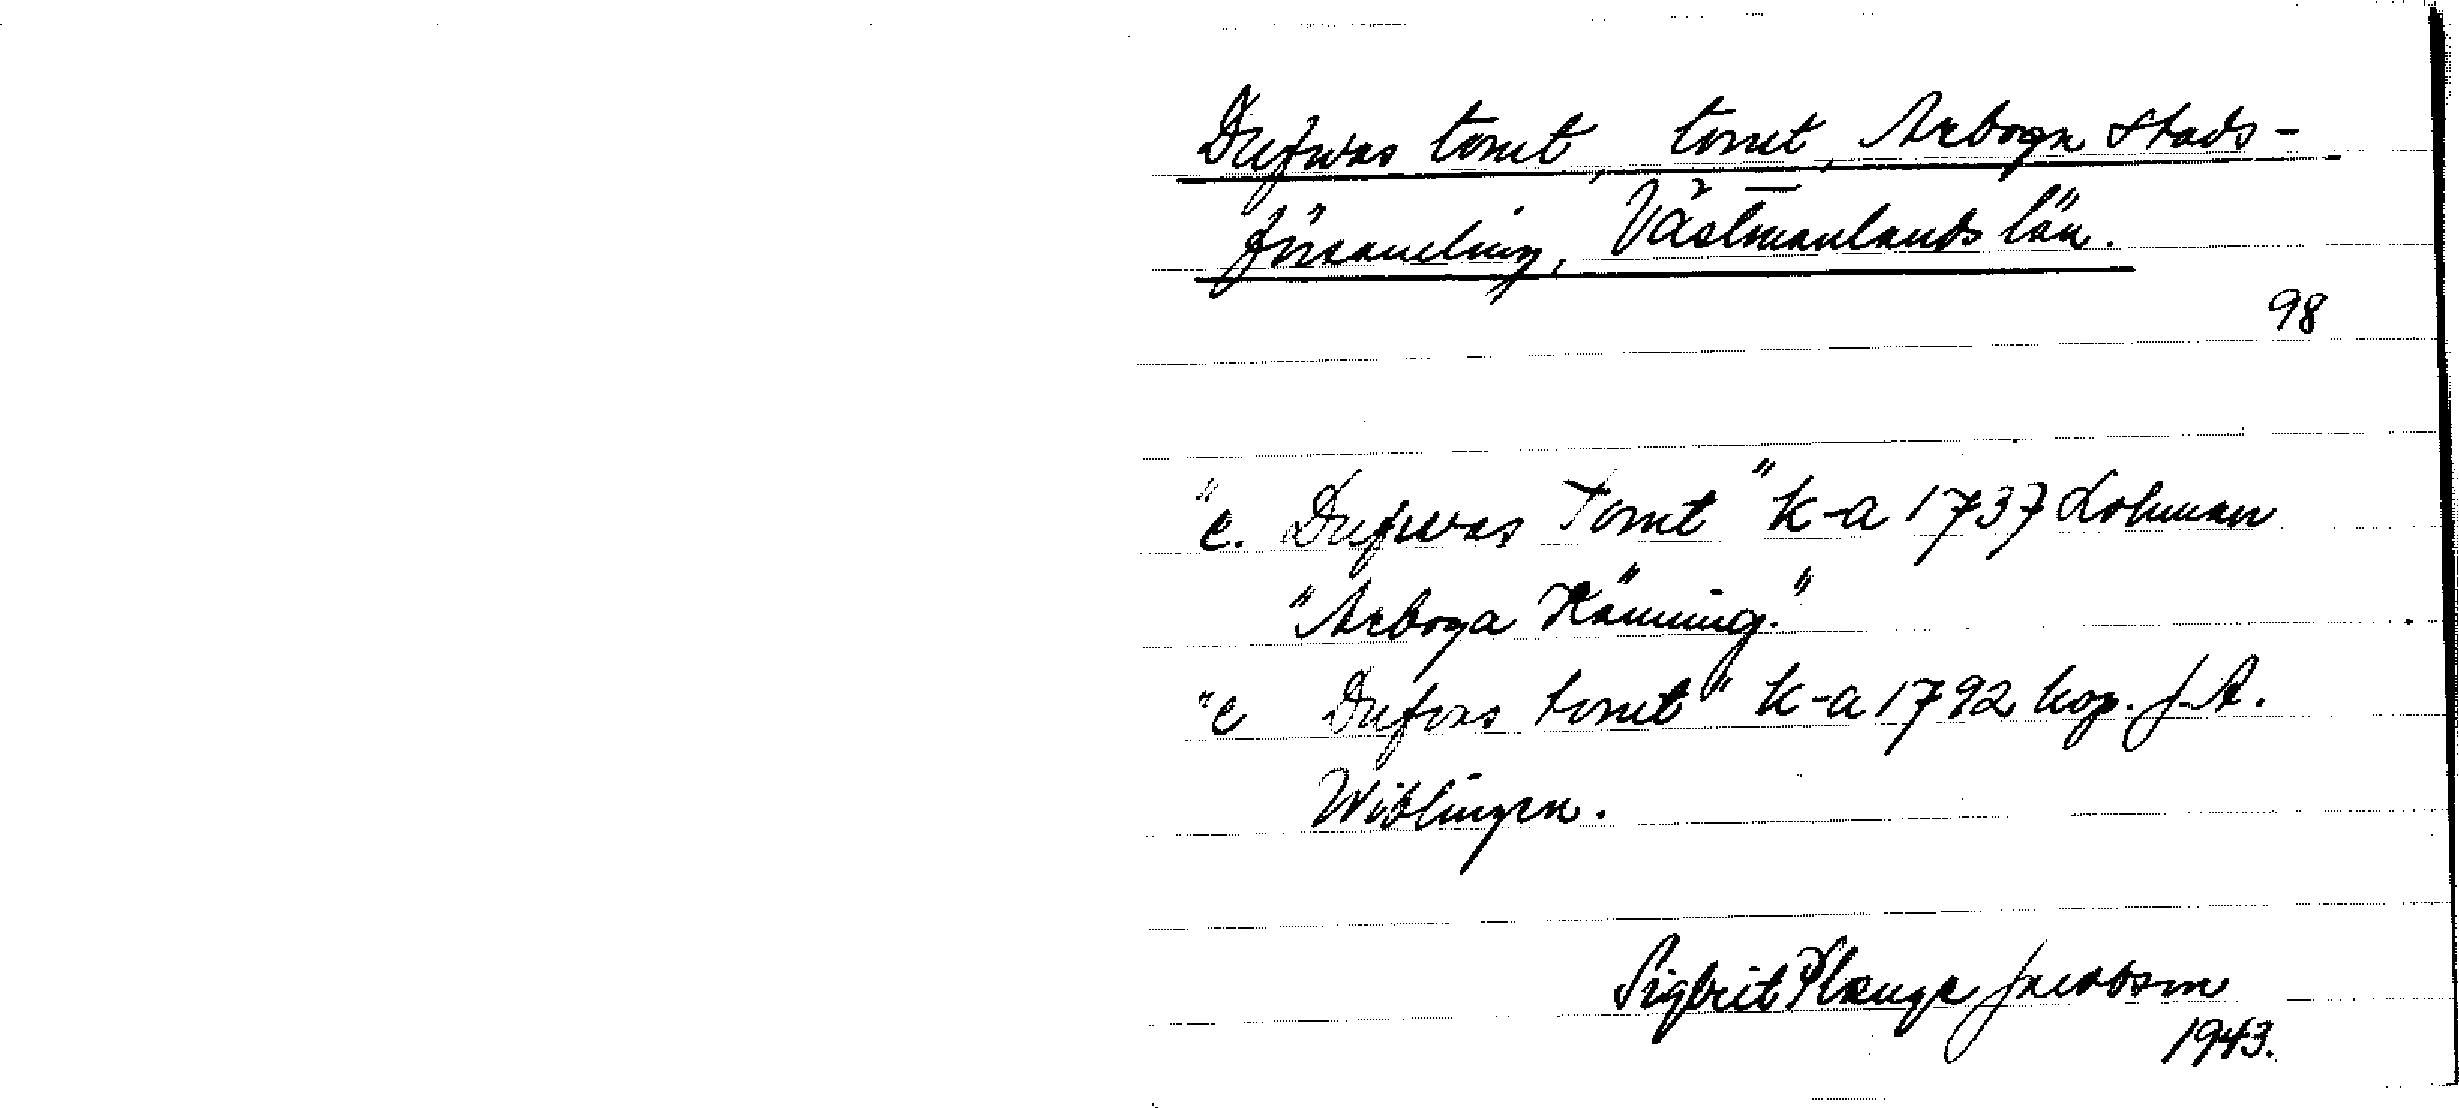 Dufwas tomt, tomt, Arboga Stads-
församling, Västmanlands län.
98
"c. Dufwas Tomt" k-a 1737 Lohman
"Arboga Känning."
"c Dufvas tomt" k-a 1792 kop. J.A.
Wiblingen.
Sigbrit Plænge Jacobson
1943.